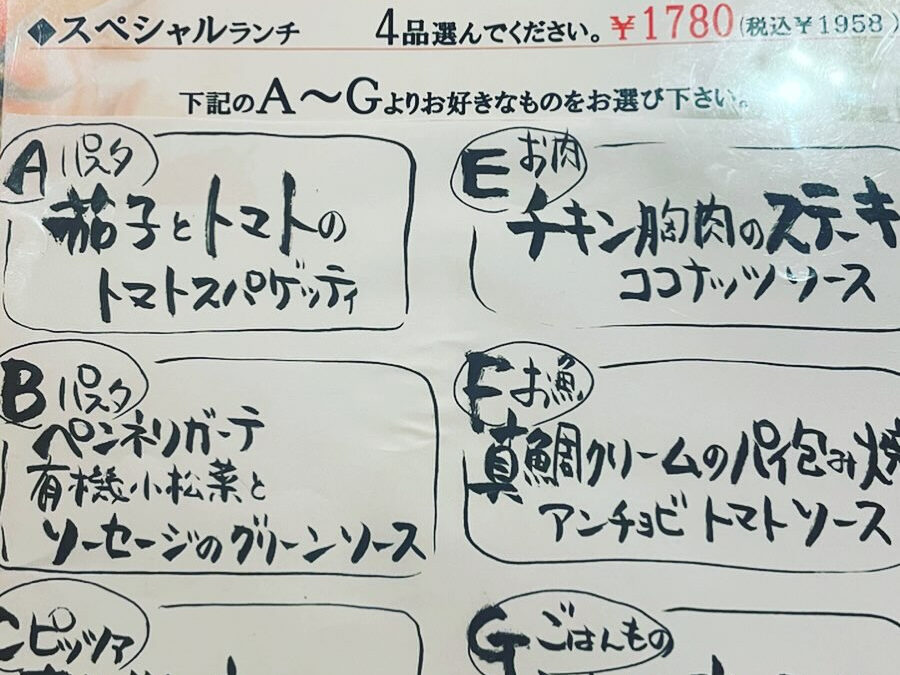 ◆スペシャルランチ 4品選んでください。￥1780(税込￥1958)
下記のA～Gよりお好きなものをお選び下さい。
A パスタ
茄子とトマトの
トマトスパゲッティ
B パスタ
ペンネリガーテ
有機小松菜と
ソーセージのグリーンソース
C ピッツァ
E お肉
チキン胸肉のステーキ
ココナッツソース
F お魚
真鯛クリームのパイ包み焼
アンチョビトマトソース
G ごはんもの